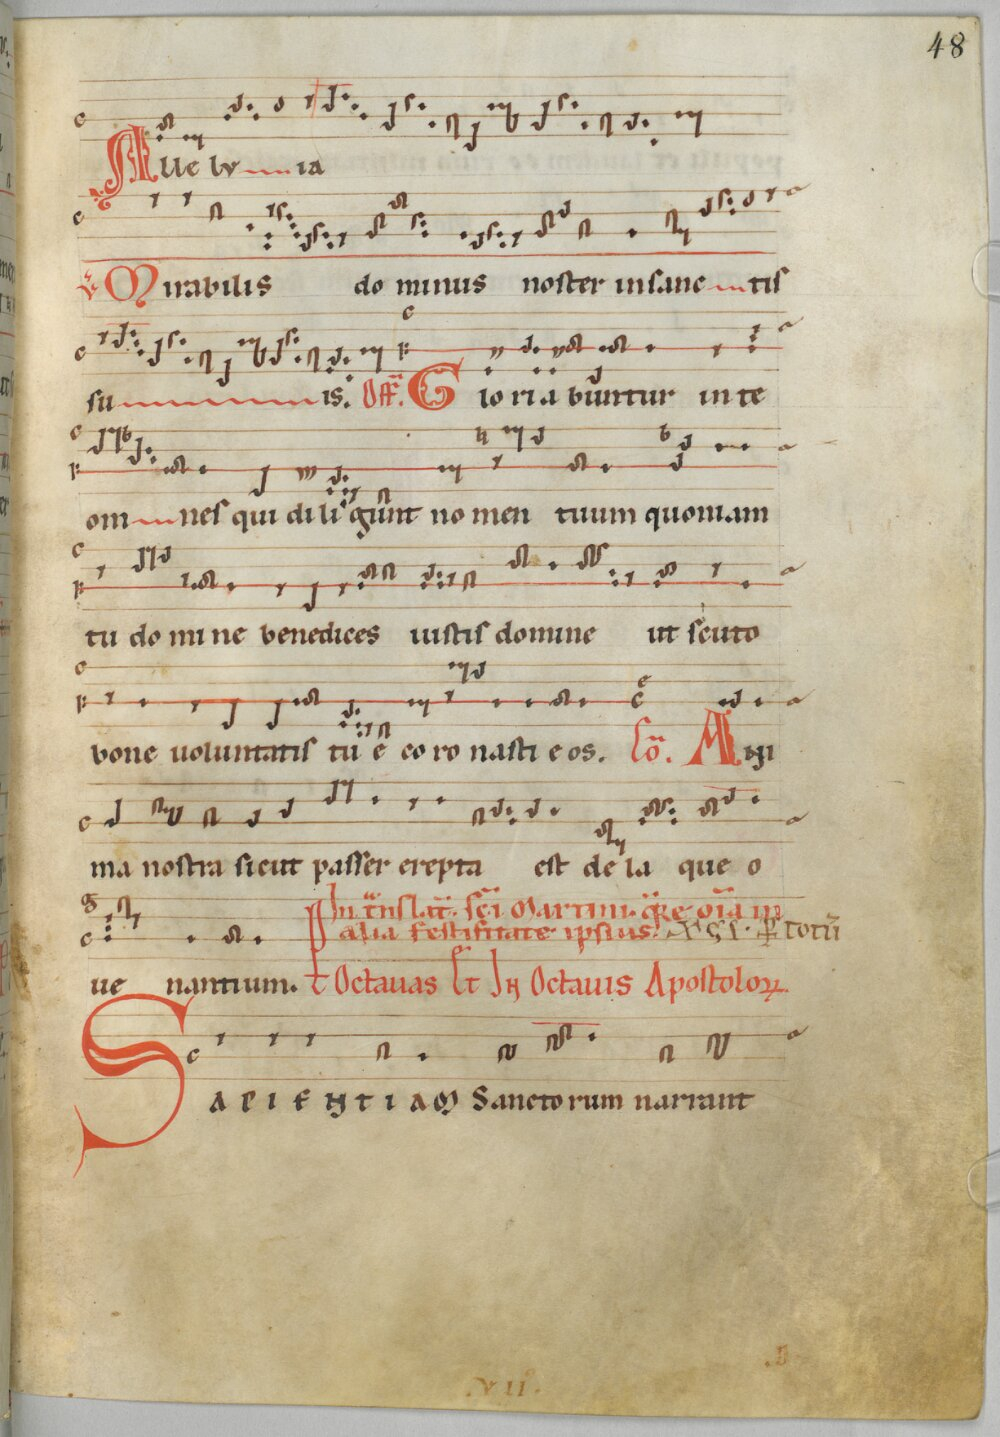 48
Alle lv ia
Mirabilis do minus noster in sanc tis
su is. Off. G lo ri a buntur in te
om nes qui dili gunt no men tuum quoniam
tu do mi ne benedices iustis domine ut scuto
bone uoluntatis tu e co ro nasti e os. Co. Ani
ma nostra sicut passer erepta est de la que o
In translat. sci Martini.
alia festiuitate ipsius.
ue nantium. Octauas Et In Octauis Apostolorum
SAPIENTIAM Sancto rum narrant
.VII.